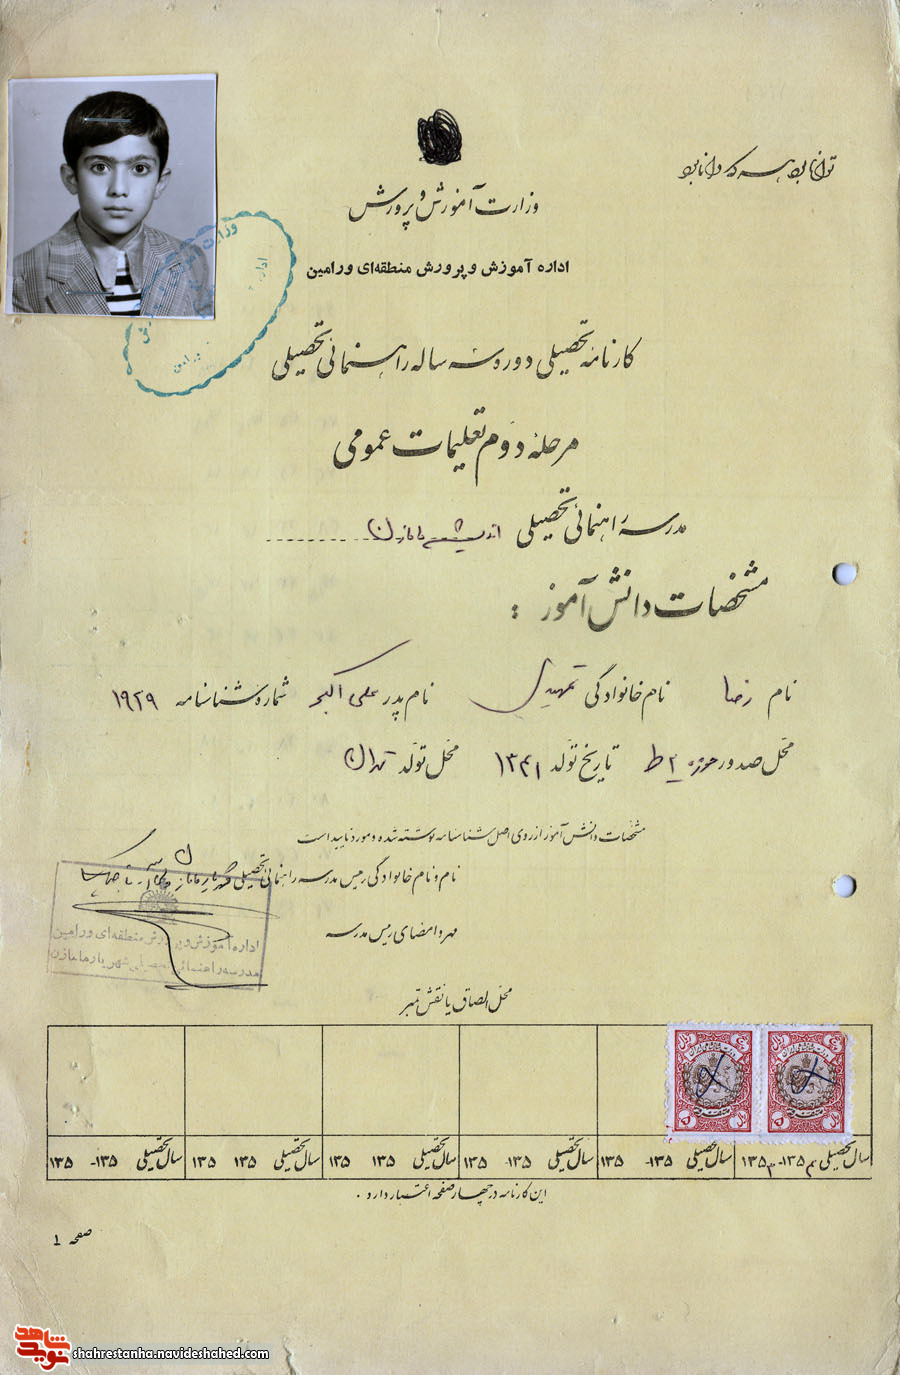 توانا بود هر که دانا بود
وزارت آموزش و پرورش
اداره آموزش و پرورش منطقه‌ای ورامین
کارنامه تحصیلی دوره سه ساله راهنمائی تحصیلی
مرحله دوم تعلیمات عمومی
مدرسه راهنمائی تحصیلی
مشخصات دانش آموز :
نام رضا نام خانوادگی تمهیدی نام پدر علی اکبر شماره شناسنامه ۱۹۲۹
محل صدور حوزه ۲ ط تاریخ تولد ۱۳۴۱ محل تولد تهران
مشخصات دانش آموز از روی اصل شناسنامه نوشته شده و مورد تایید است
نام و نام خانوادگی رئیس مدرسه راهنمائی تحصیلی
مهر و امضای رئیس مدرسه
اداره آموزش و پرورش منطقه‌ای ورامین
مدرسه راهنمائی تحصیلی شهریار مامازن
محل الصاق یا نقش تمبر
سال تحصیلی ۱۳۵ - ۱۳۵ سال تحصیلی ۱۳۵ - ۱۳۵ سال تحصیلی ۱۳۵ - ۱۳۵ سال تحصیلی ۱۳۵ ۱۳۵ سال تحصیلی ۱۳۵ ۱۳۵ سال تحصیلی ۱۳۵ - ۱۳۵
این کارنامه در چهار صفحه اعتبار دارد .
صفحه ۱
نوید شاهد
shahrestanha.navideshahed.com